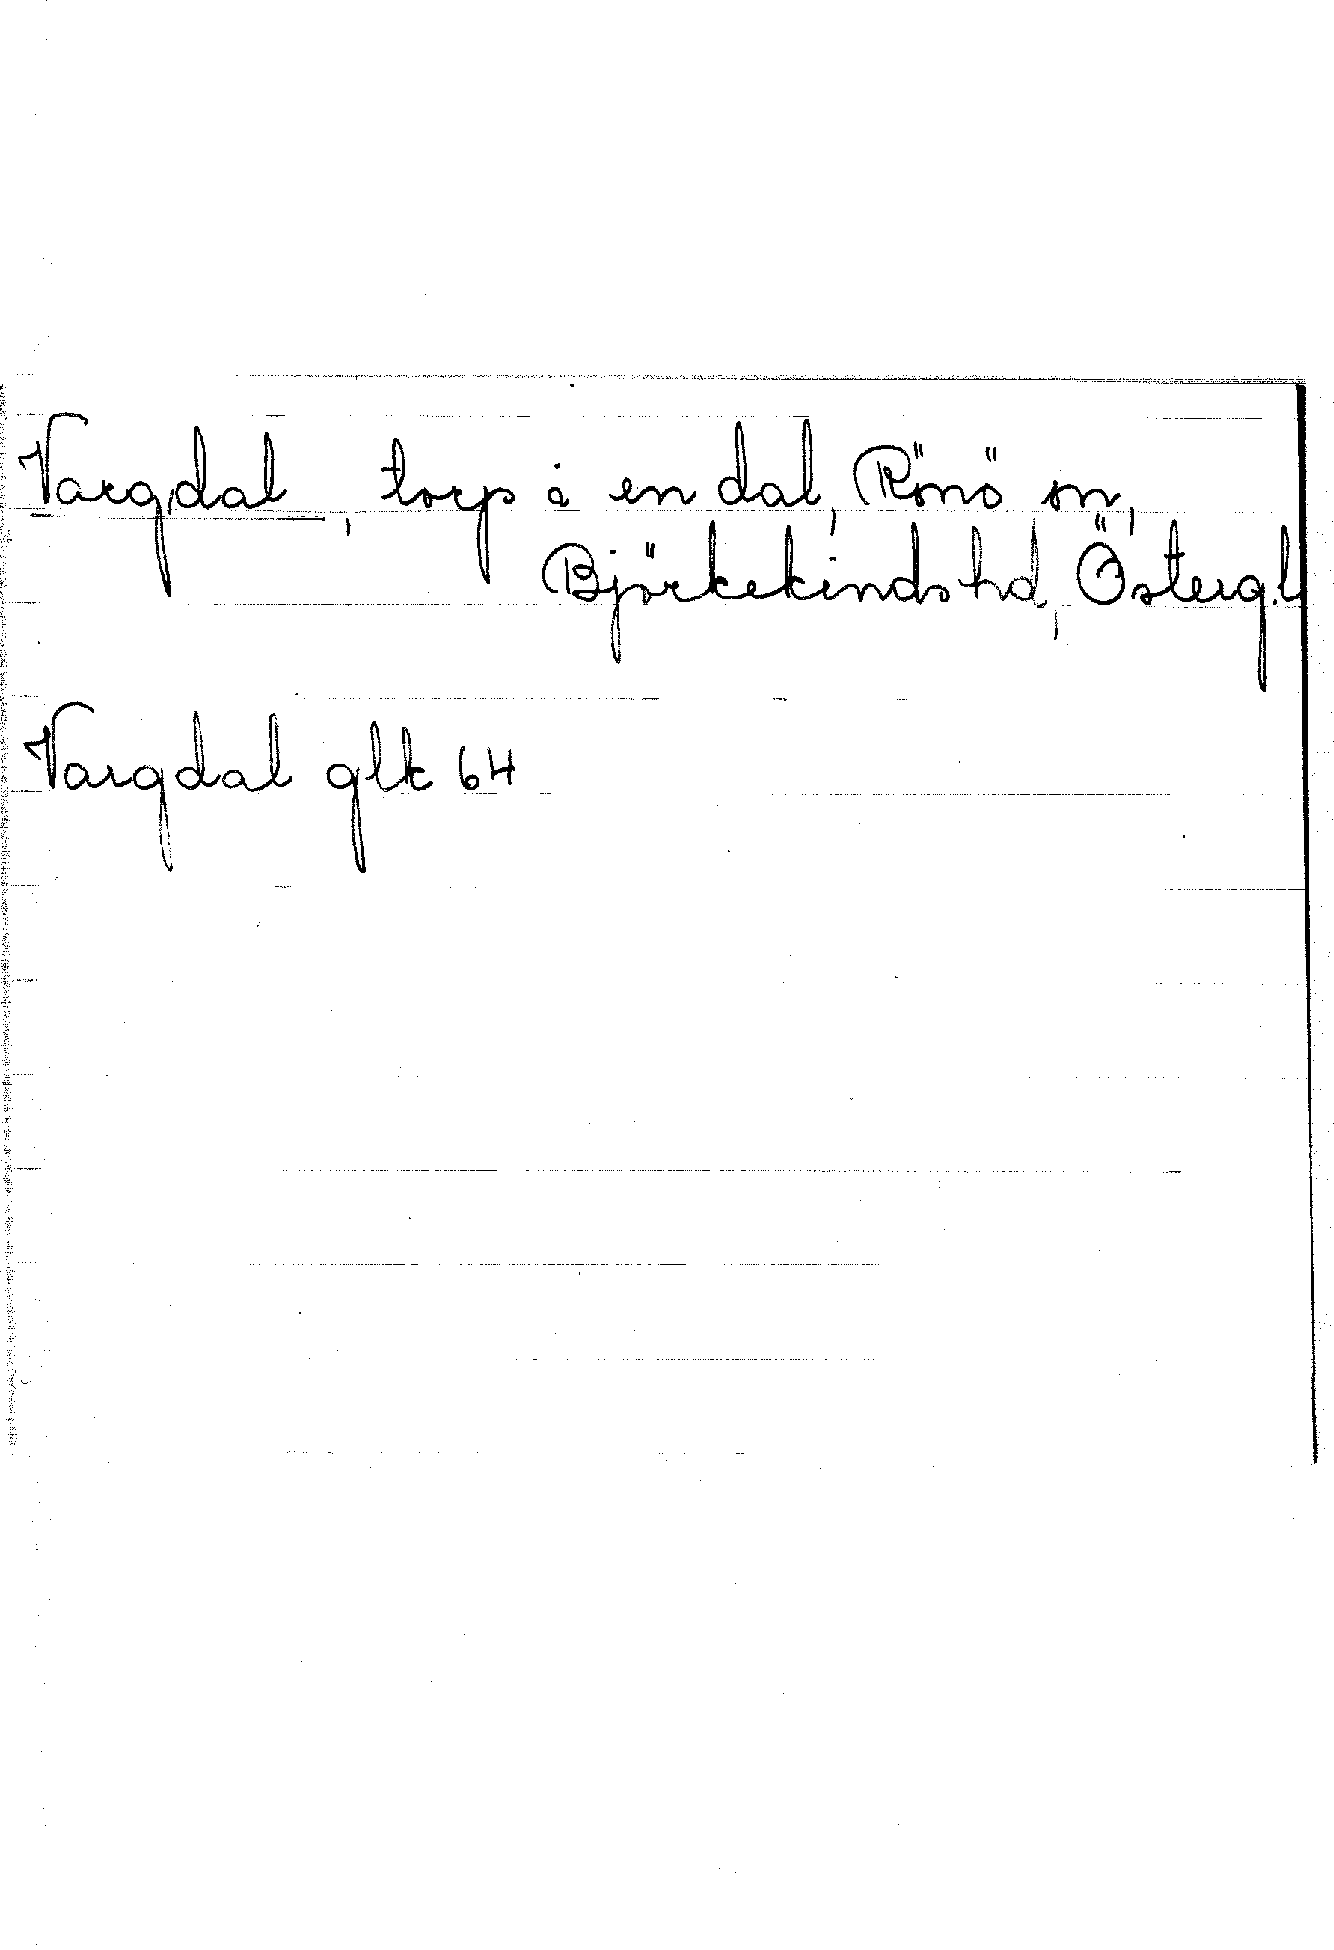 Vargdal, torp i en dal, Rönö sn,
Björkekinds hd, Österg.l
Vargdal glk 64